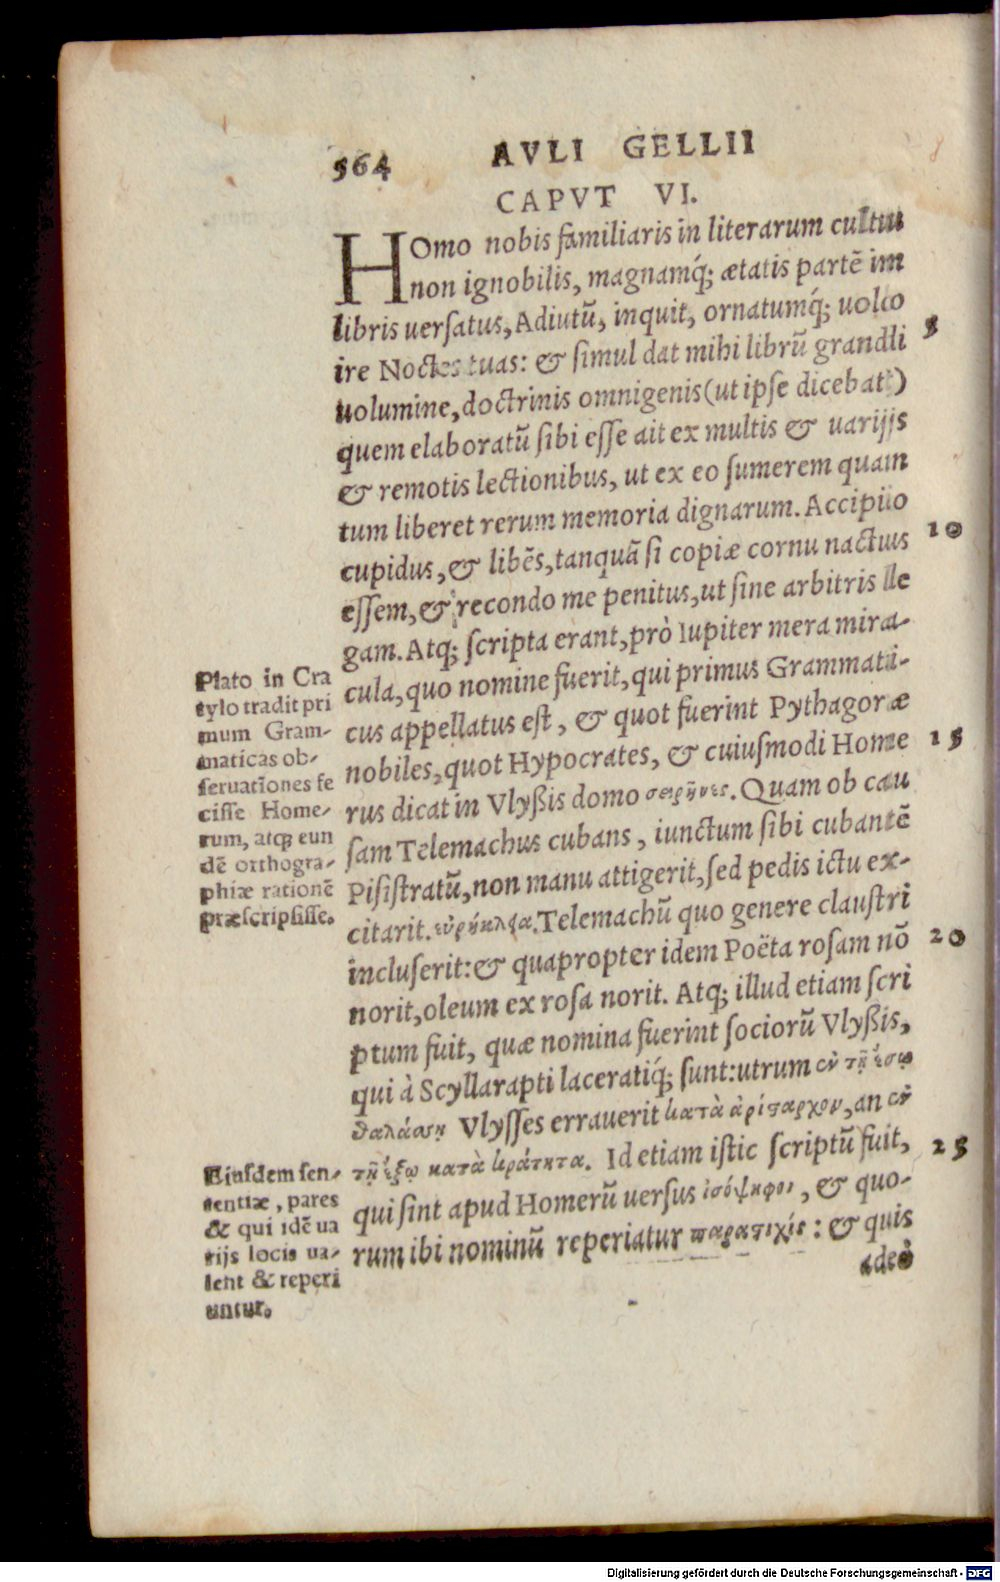 564 AVLI GELLII
CAPVT VI.
HOmo nobis familiaris in literarum cultu
non ignobilis, magnamq́; ætatis partẽ in
libris uersatus, Adiutũ, inquit, ornatumq́; uolo
ire Noctes tuas: & simul dat mihi librũ grandi
uolumine, doctrinis omnigenis (ut ipse dicebat)
quem elaboratũ sibi esse ait ex multis & uarijs
& remotis lectionibus, ut ex eo sumerem quan
tum liberet rerum memoria dignarum. Accipio
cupidus, & libẽs, tanquã si copiæ cornu nactus
essem, & recondo me penitus, ut sine arbitris le
gam. Atq; scripta erant, prò Iupiter mera mira-
cula, quo nomine fuerit, qui primus Grammati-
cus appellatus est, & quot fuerint Pythagoræ
nobiles, quot Hypocrates, & cuiusmodi Home
rus dicat in Vlyßis domo σειρῆνες. Quam ob cau
sam Telemachus cubans, iunctum sibi cubantẽ
Pisistratũ, non manu attigerit, sed pedis ictu ex-
citarit. εὐρύκλεα. Telemachũ quo genere claustri
incluserit: & quapropter idem Poëta rosam nõ
norit, oleum ex rosa norit. Atq; illud etiam scri
ptum fuit, quæ nomina fuerint sociorũ Vlyßis,
qui à Scylla rapti laceratiq́; sunt: utrum ἐν τῇ ἔσω
θαλάσσῃ Vlysses errauerit κατὰ ἀρίσταρχον, an ἐν
τῇ ἔξω κατὰ κράτητα. Id etiam istic scriptũ fuit,
qui sint apud Homerũ uersus ἰσόψηφοι, & quo-
rum ibi nominũ reperiatur παραστιχίς: & quis
adeò
5
10
15
20
25
Plato in Cra
tylo tradit pri
mum Gram-
maticas ob-
seruatiõnes fe
cisse Home-
rum, atq; eun
dẽ orthogra-
phiæ rationẽ
præscripsisse.
Eiusdem sen-
tentiæ, pares
& qui idẽ ua
rijs locis ua-
lent & reperi
untur.
Digitalisierung gefördert durch die Deutsche Forschungsgemeinschaft - DFG